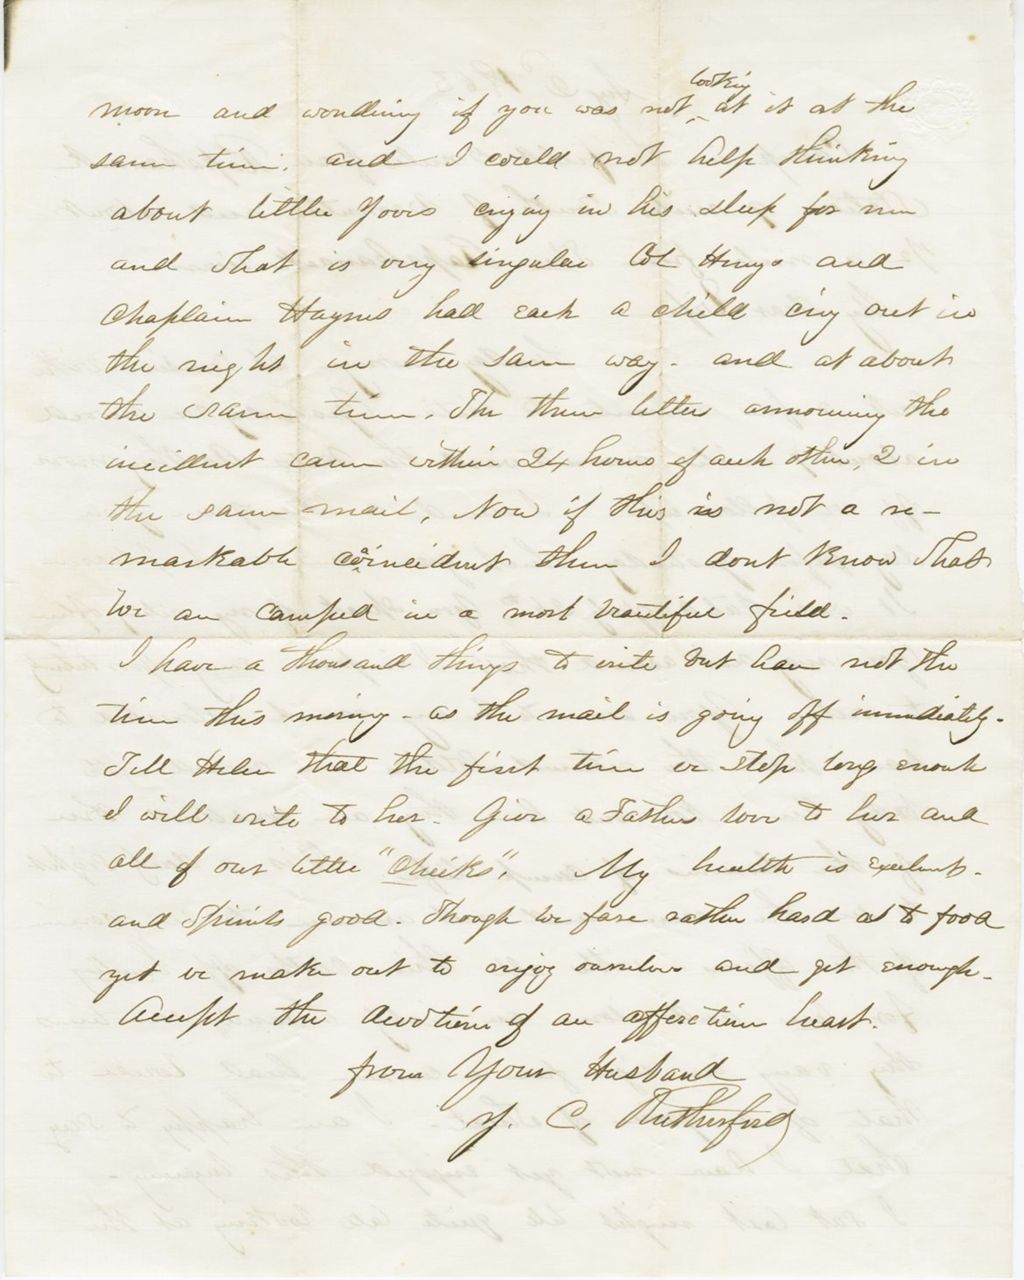 moon and wondering if you was not looking at it at the
same time. and I could not help thinking
about little Yoris crying in his sleep for me
and what is very singular Col Henry and
Chaplain Haynes had each a child cry out in
the night in the same way - and at about
the same time. The three letters announcing the
incident came within 24 hours of each other, 2 in
the same mail, Now if this is not a re-
markable coincident then I dont know what
We are camped in a most beautiful field.
I have a thousand things to write but have not the
time this morning - as the mail is going off immediately -
Tell Helen that the first time we stop long enouh
I will write to her - Give a Fathers love to her and
all of our little "Cheeks", My health is exelent -
and spirits good. Though we fare rather hard as to food
yet we make out to enjoy ourselves and get enough -
Accept the devotion of an affection heart.
from Your Husband
J. C. Rutherford